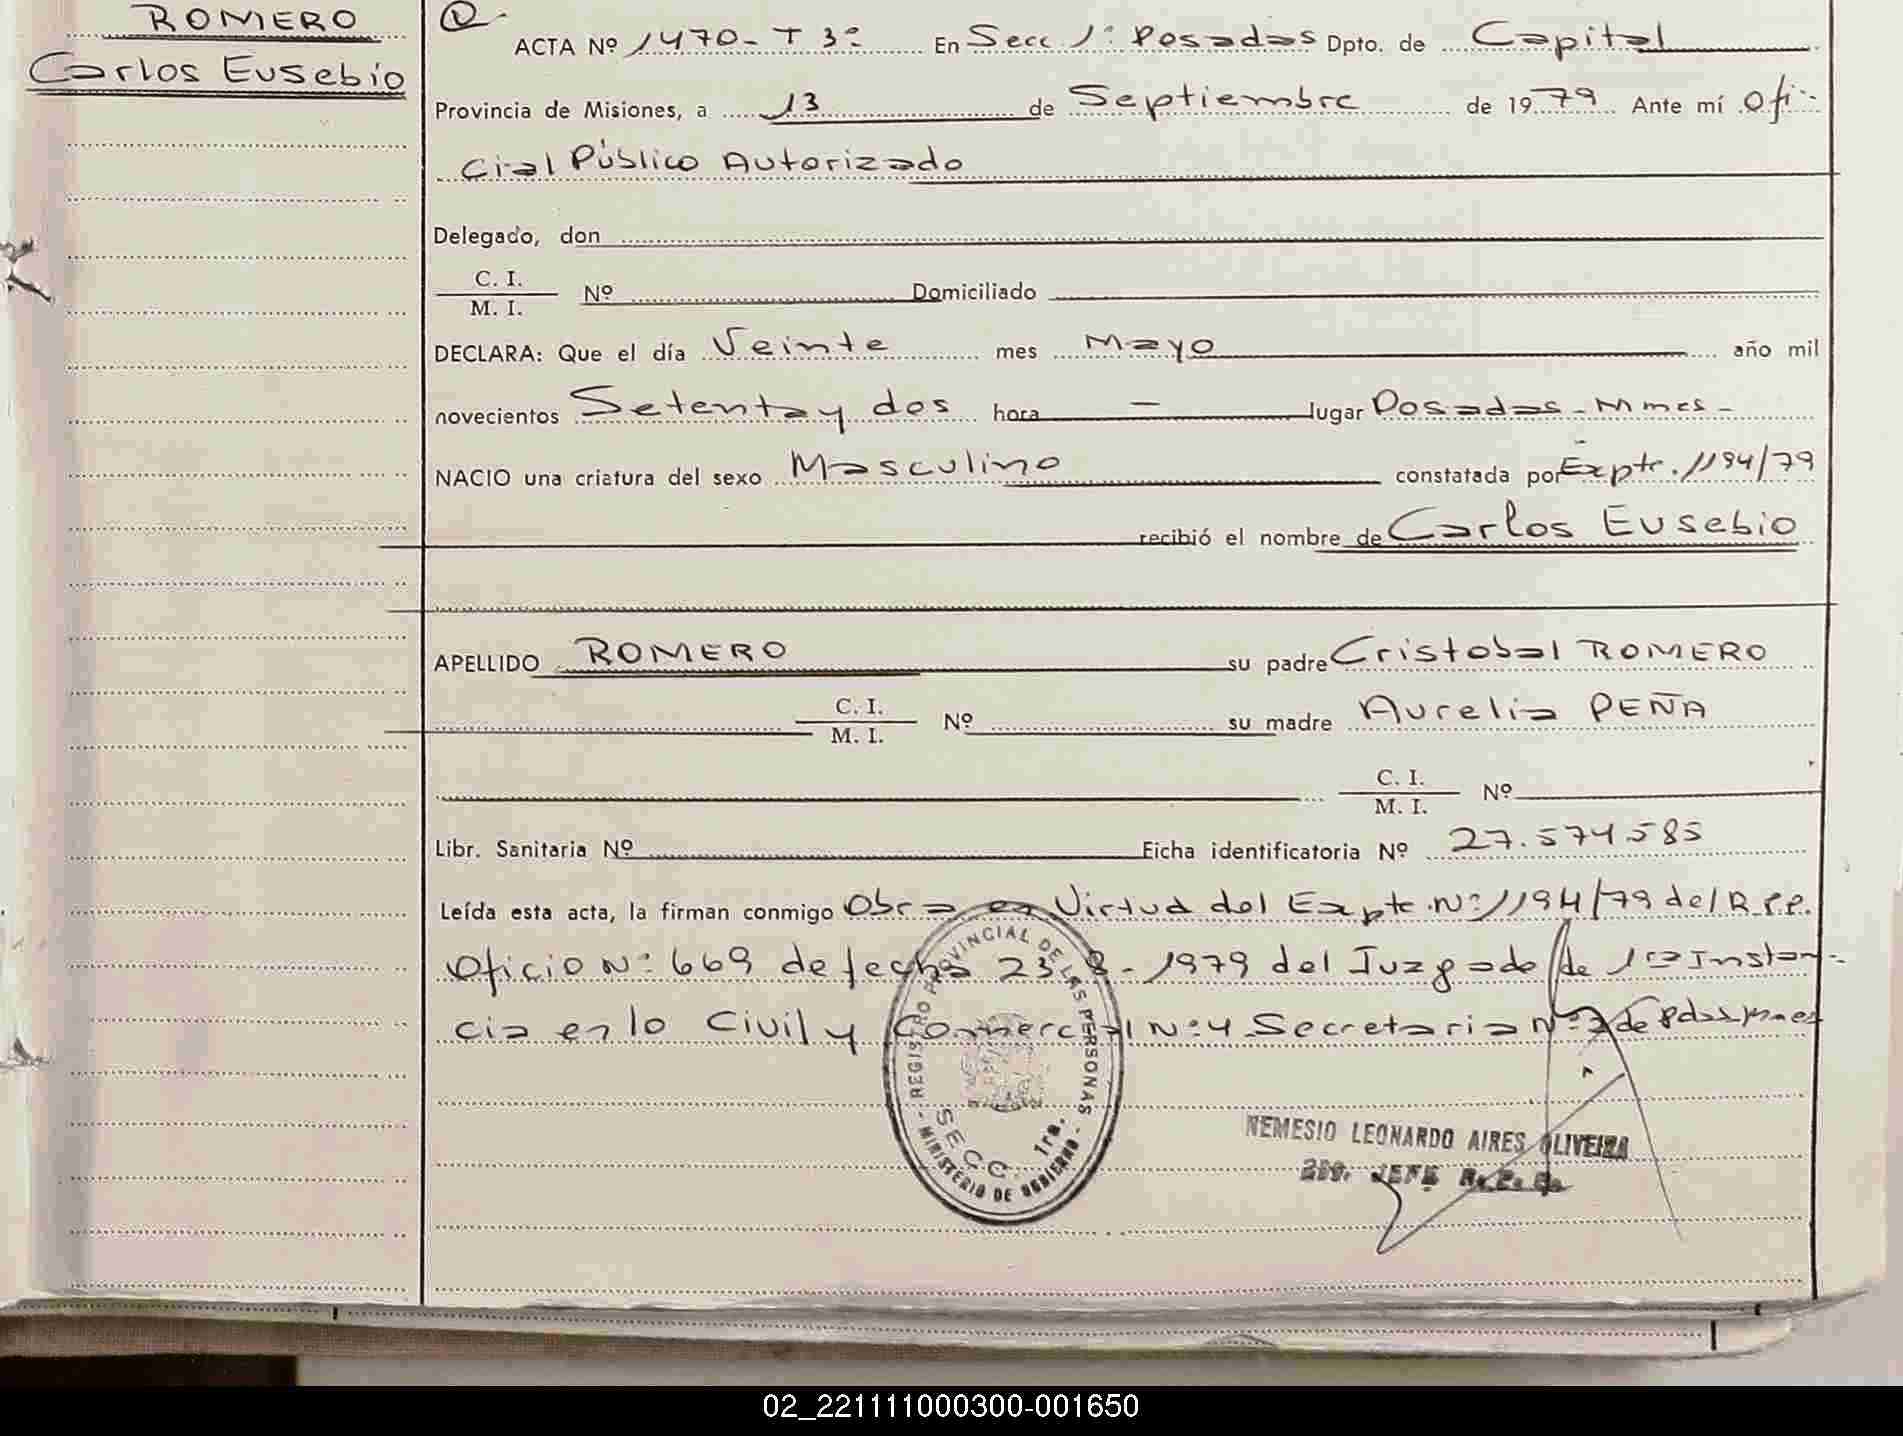 ROMERO
Carlos Eusebio
ACTA Nº 1470 - T 3º En Secc. 1º Posadas Dpto. de Capital
Provincia de Misiones, a 13 de Septiembre de 1979 Ante mí Ofi-
cial Público Autorizado
Delegado, don
C. I.
M. I. Nº Domiciliado
DECLARA: Que el día Veinte mes Mayo año mil
novecientos Setenta y dos hora — lugar Posadas - Mnes -
NACIO una criatura del sexo Masculino constatada por Expte. 1194/79
recibió el nombre de Carlos Eusebio
APELLIDO ROMERO su padre Cristobal ROMERO
C. I.
M. I. Nº su madre Aurelia PEÑA
C. I.
M. I. Nº
Libr. Sanitaria Nº Ficha identificatoria Nº 27.574.585
Leída esta acta, la firman conmigo Obra en Virtud del Expte. Nº 1194/79 del R.P.P.
Oficio Nº 669 de fecha 23 8 - 1979 del Juzgado de 1ra Instan-
cia en lo Civil y Comercial Nº 4 Secretaria Nº 2 de Pdas Mnes
REGISTRO PROVINCIAL DE LAS PERSONAS
SECC. 1ra.
- MINISTERIO DE GOBIERNO -
NEMESIO LEONARDO AIRES OLIVEIRA
JEFE
02_221111000300-001650